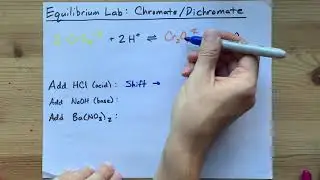 Equilibrium Lab: Chromate/Dichromate
+ 2 H⁺ ⇌ Cr₂O
Add HCl (acid): Shift →
Add NaOH (base):
Add Ba(NO₃)₂: